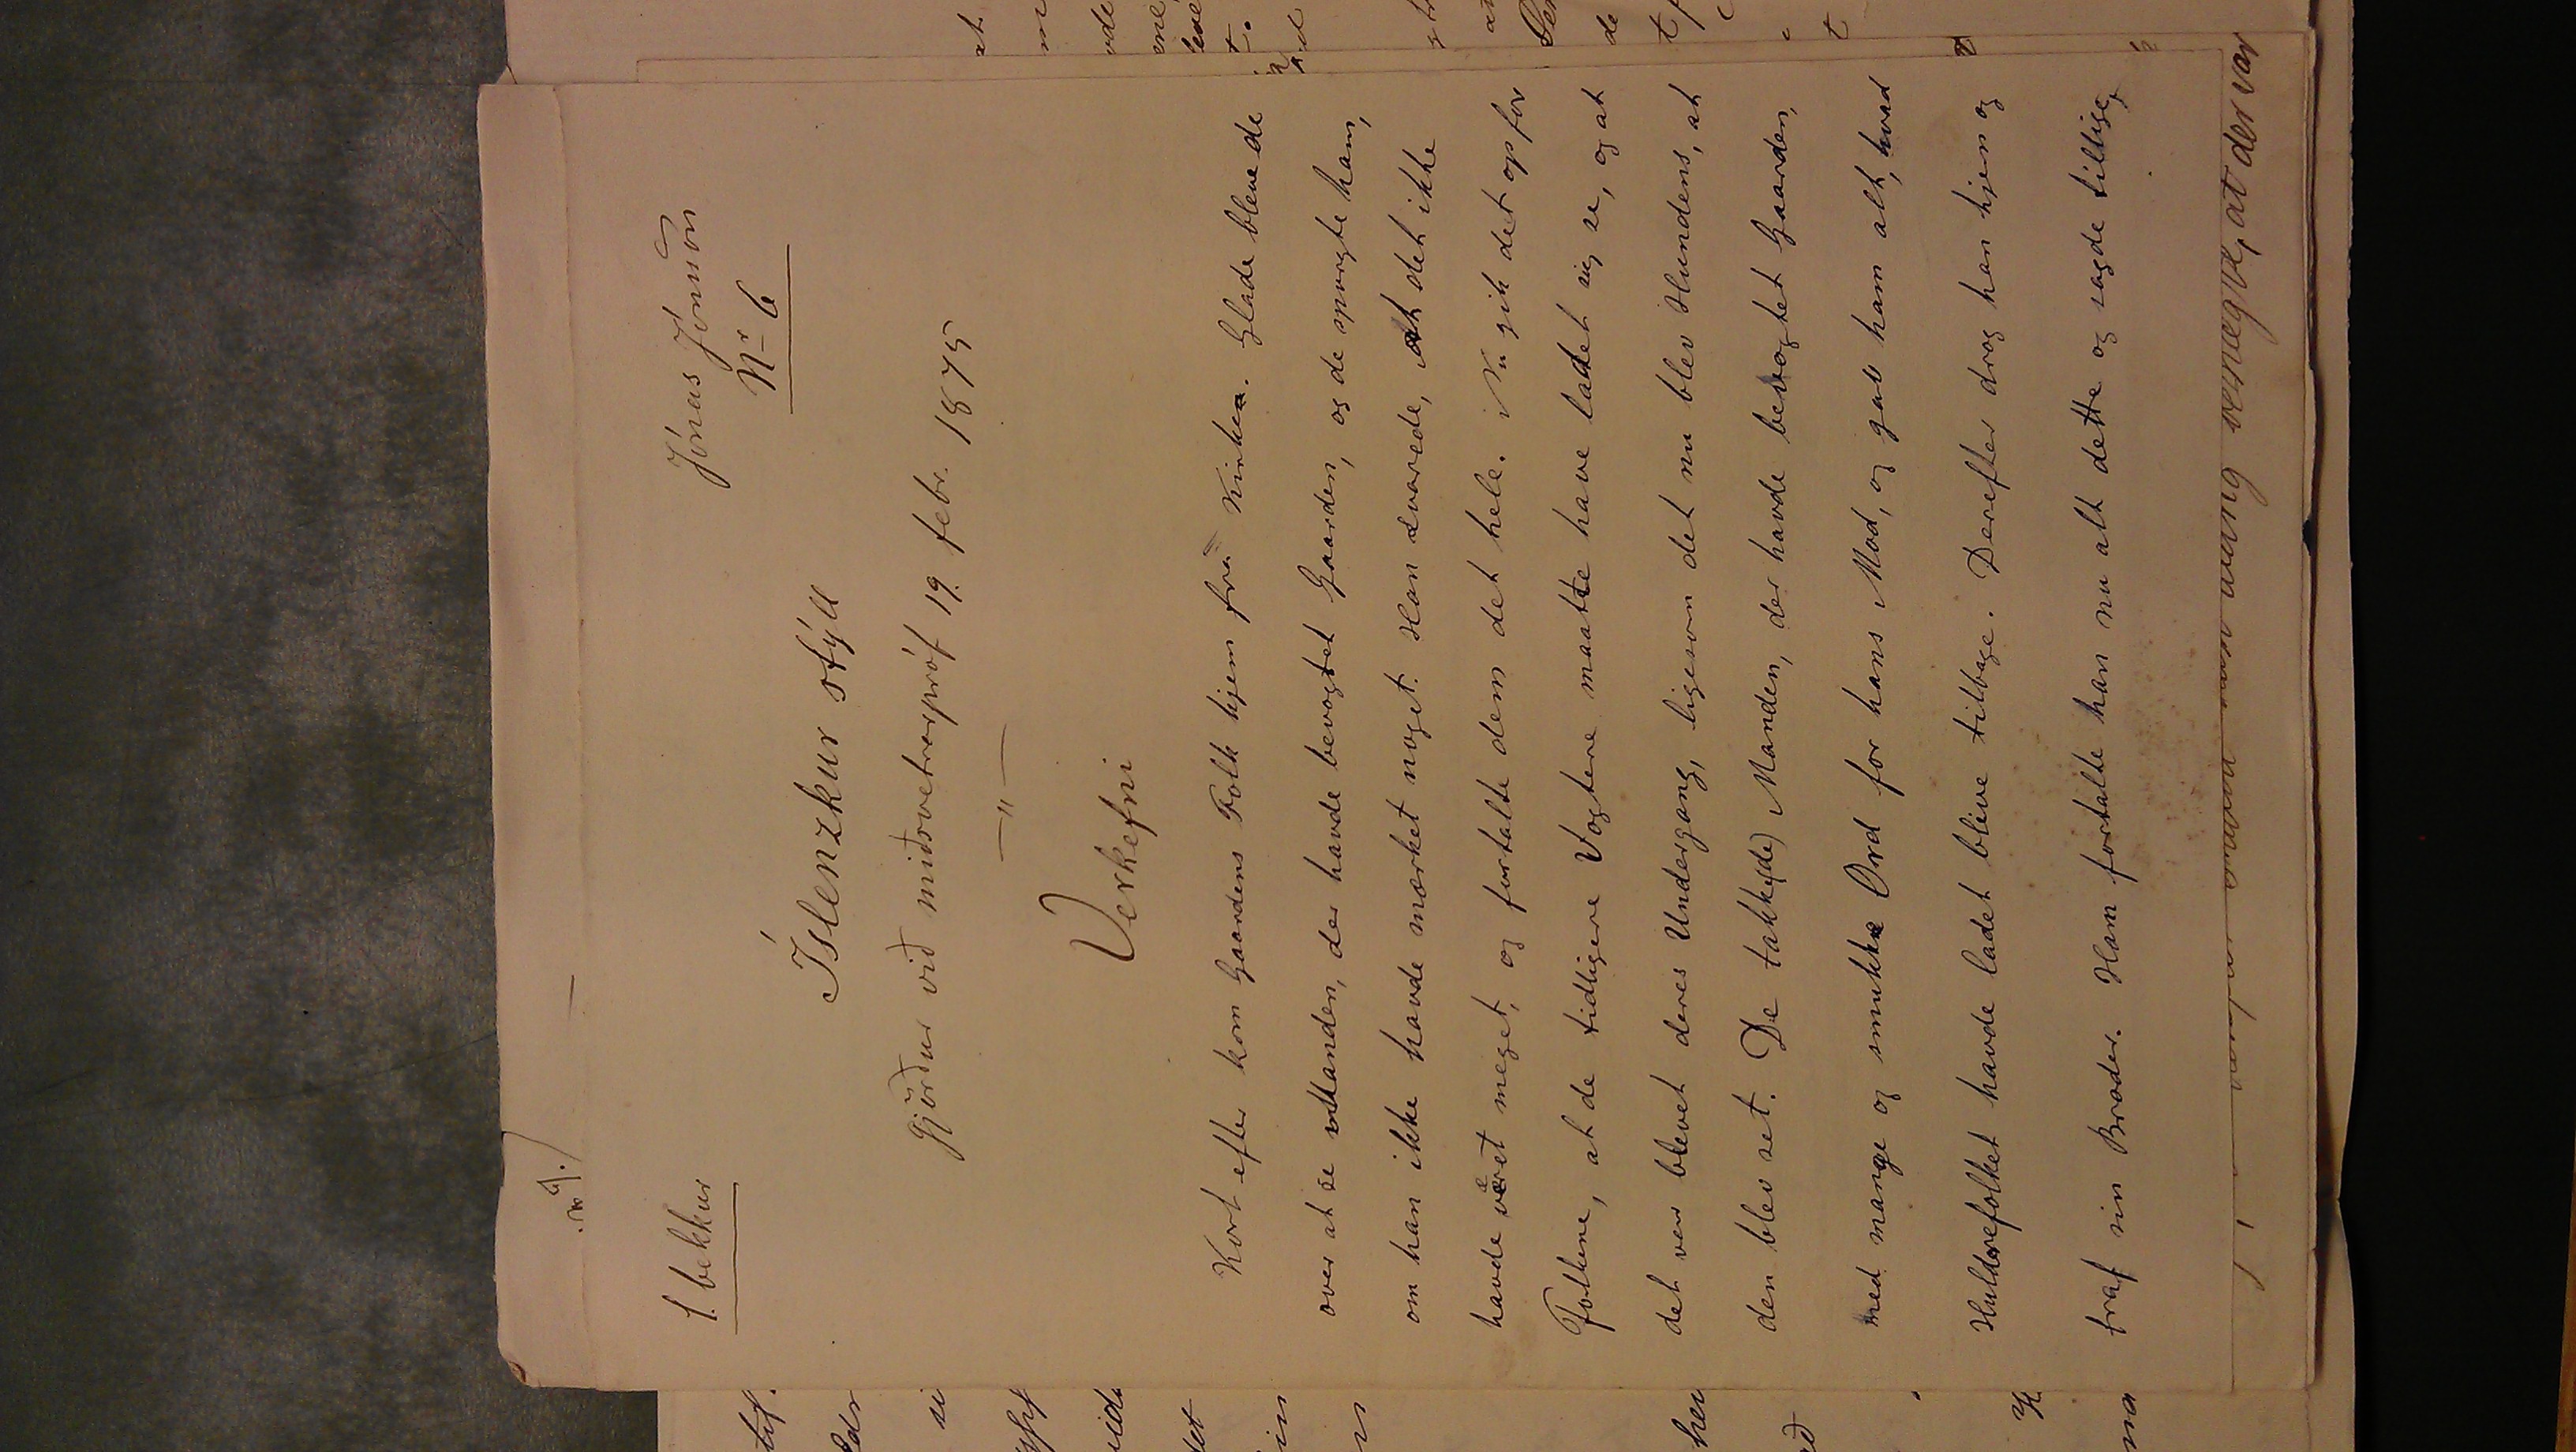 1. bekkur
Jónas Jónsson
Nr 6
Íslenzkur stýll
gjörður við miðsvetrarpróf 19. febr. 1875
— " —
Verkefni
Kort efter kom Gaardens Folk hjem fra Kirken. Glade bleve de
over at se Manden, der havde bevogtet Gaarden, og de spurgte ham,
om han ikke havde mærket noget. Han svarede, at det ikke
havde været meget, og fortalte dem det hele. Nu gik det op for
Folkene, at de tidligere Vogtere maatte have ladet sig se, og at
det var blevet deres Undergang, ligesom det nu blev Hundens, at
den blev set. De takke(de) Manden, der havde bevogtet Gaarden,
med mange og smukke Ord for hans Mod, og gav ham alt, hvad
Huldrefolket havde ladet blive tilbage. Derefter drog han hjem og
traf sin Broder. Ham fortalte han nu alt dette og sagde tillige,
at der var